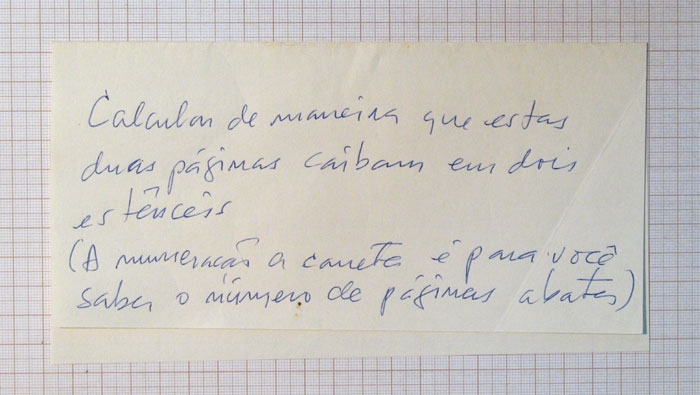 Calcular de maneira que estas
duas páginas caibam em dois
estênceis
(A numeração a caneta é para você
saber o número de páginas a bater)